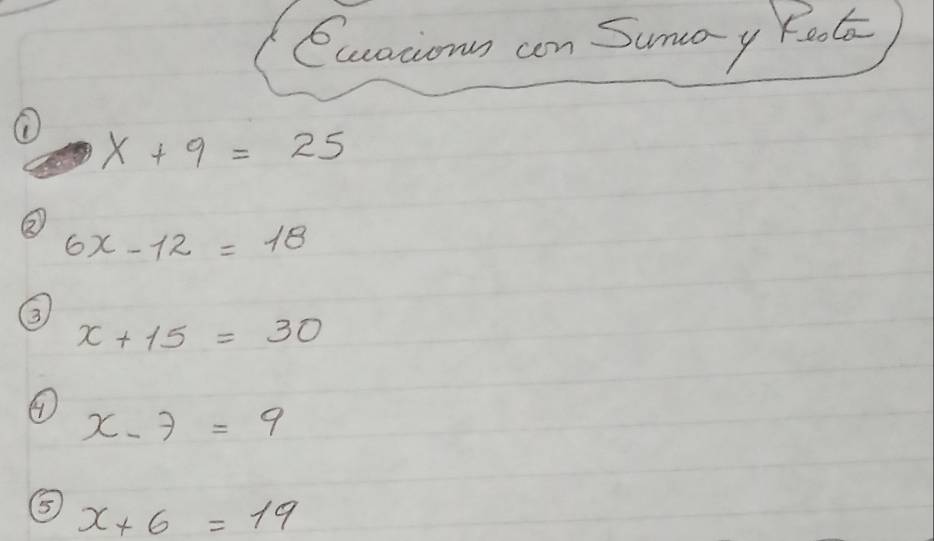 Ecuaciones con Suma y Resta
① x + 9 = 25
② 6x - 12 = 18
③ x + 15 = 30
④ x - 7 = 9
⑤ x + 6 = 19